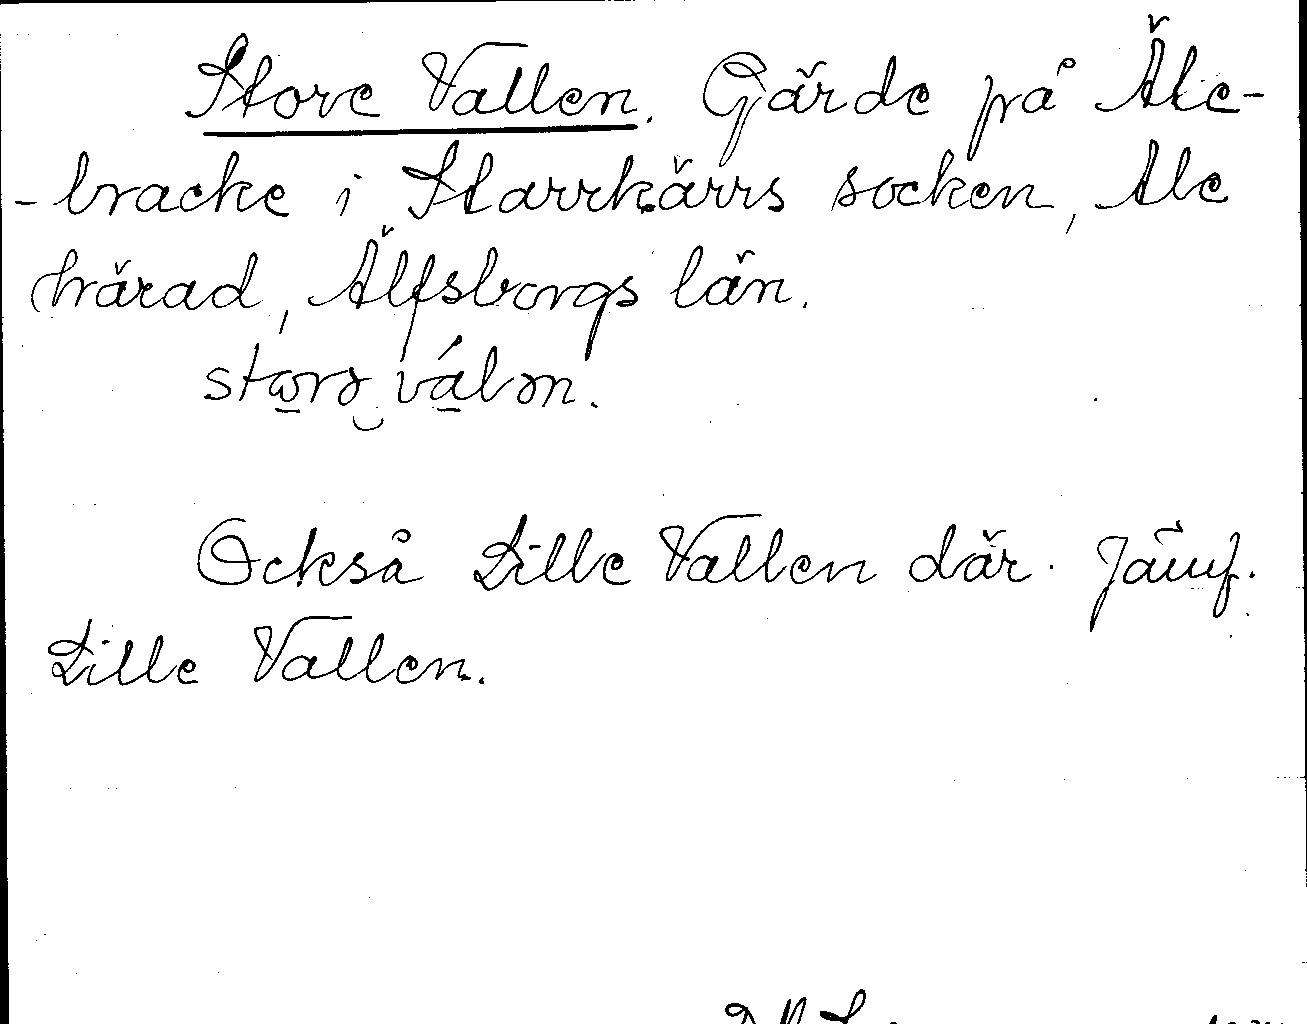 Store Vallen. Gärde på Äle-
-bracke i Starrkärrs socken, Ale
härad, Älfsborgs län.
storə válən.
Också Lille Vallen där. Jämf.
Lille Vallen.